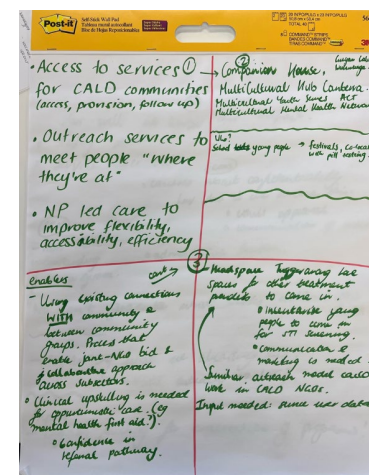 Post-it
Self-Stick Wall Pad
· Access to services ①
for CALD communities
(access, provision, follow up)
· Outreach services to
meet people "where
they're at"
· NP led care to
improve flexibility,
accessibility, efficiency
②
→ Companion House,
Multicultural Hub Canberra.
Multicultural Youth Services ACT
Multicultural Mental Health Network
Who?
young people → festivals, co-locate
with pill testing.
③
enablers
- Using existing connections
WITH community &
between community
groups. Process that
enable joint-NGO bid &
collaborative approach
across subsectors.
· Clinical upskilling is needed
for opportunistic care. (eg
mental health first aid?).
· Confidence in
referral pathway.
cont →
Headspace Tuggeranong has
spaces for other treatment
to come in.
· incentivise young
people to come in
for STI screening.
· Communication &
marketing is needed.
Similar outreach model could
work in CALD NGOs.
Input needed: service user data